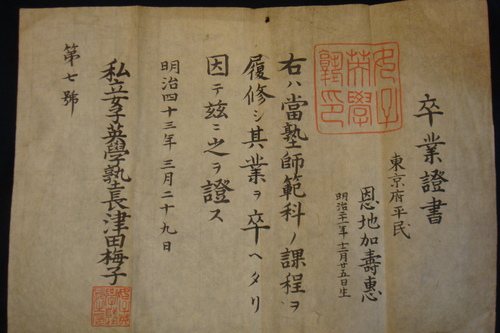 卒業證書
東京府平民
恩地加壽惠
明治二十一年十二月廿五日生
右ハ當塾師範科ノ課程ヲ
履修シ其業ヲ卒ヘタリ
因テ玆ニ之ヲ證ス
明治四十三年三月二十九日
私立女子英學塾長津田梅子
第七號
女子
英學
塾印